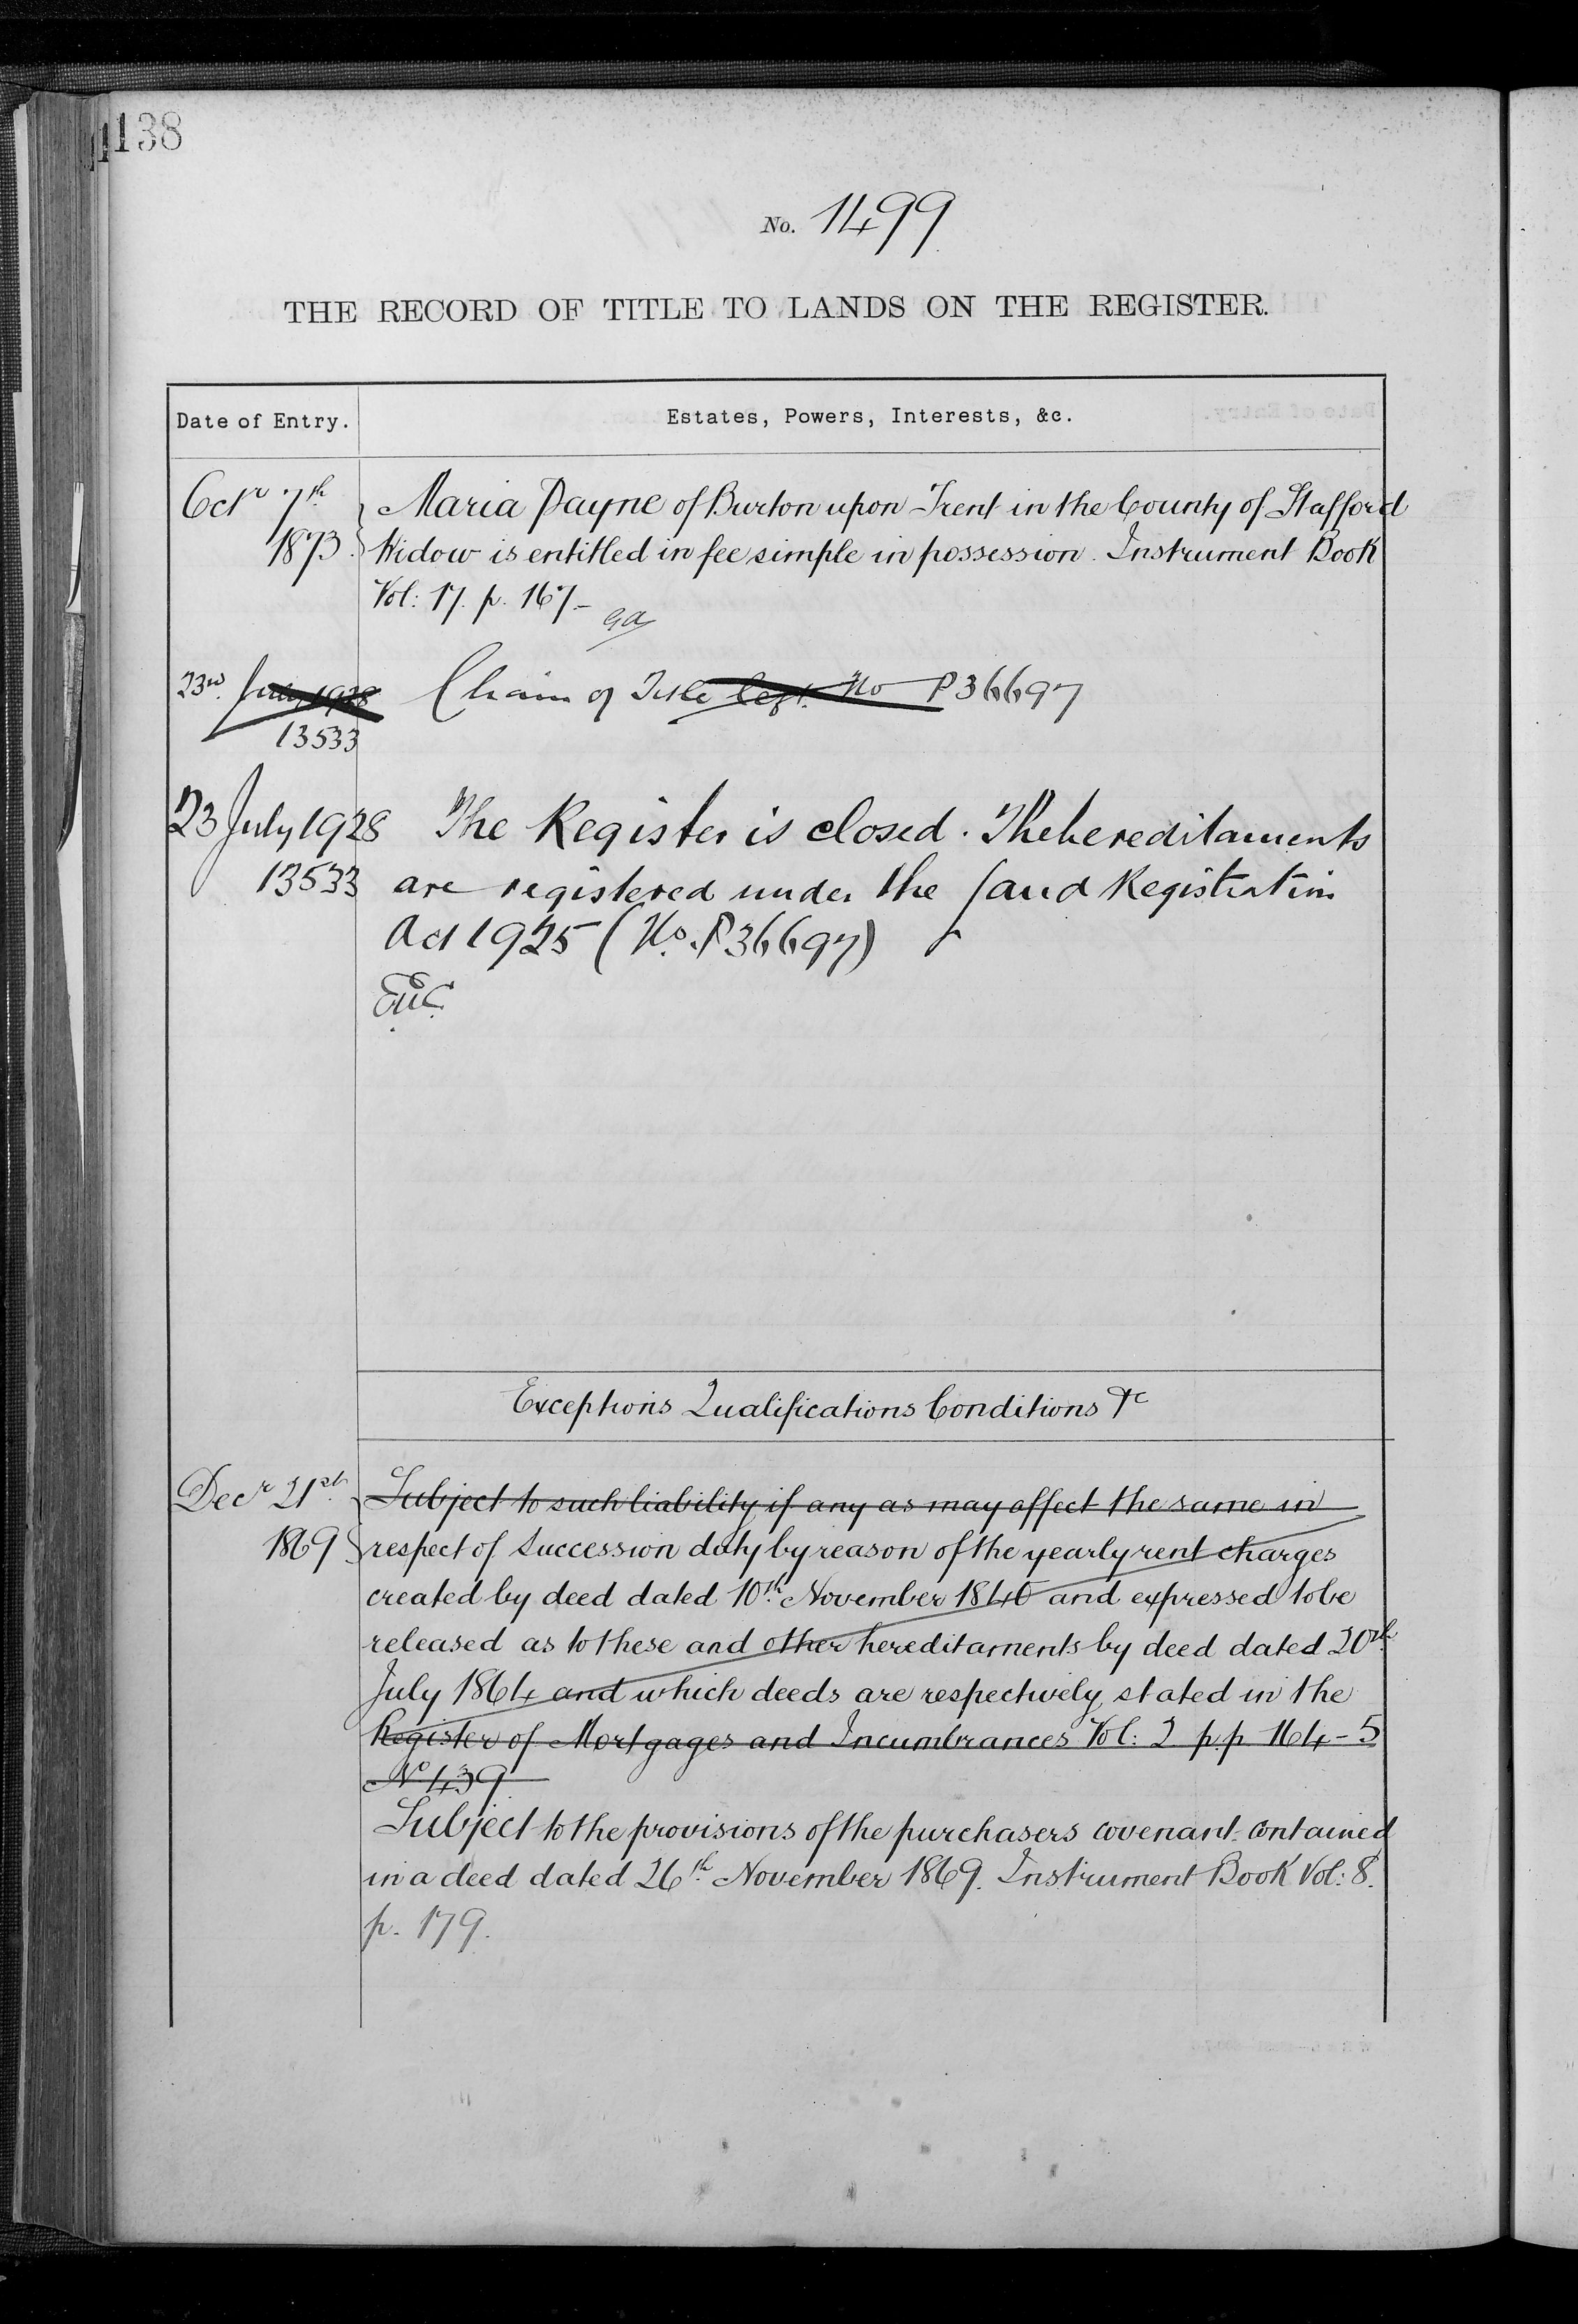 138
No. 1499
THE RECORD OF TITLE TO LANDS ON THE REGISTER.
Date of Entry.
Estates, Powers, Interests, &c.
Octr 7th
1873.
Maria Payne of Burton upon Trent in the County of Stafford
Widow is entitled in fee simple in possession. Instrument Book
Vol: 17. p. 167-
23rd July 1928
13533
Chain of Title No P36697
23 July 1928
13533
The Register is closed. The hereditaments
are registered under the Land Registration
Act 1925 (No. P36697)
Exceptions Qualifications Conditions &c
Decr 21st
1869
Subject to such liability if any as may affect the same in
respect of Succession duty by reason of the yearly rent charges
created by deed dated 10th November 1840 and expressed to be
released as to these and other hereditaments by deed dated 20th
July 1864 and which deeds are respectively stated in the
Register of Mortgages and Incumbrances Vol: 2 p.p 164-5
No 439
Subject to the provisions of the purchasers covenant contained
in a deed dated 26th November 1869. Instrument Book Vol: 8.
p. 179.